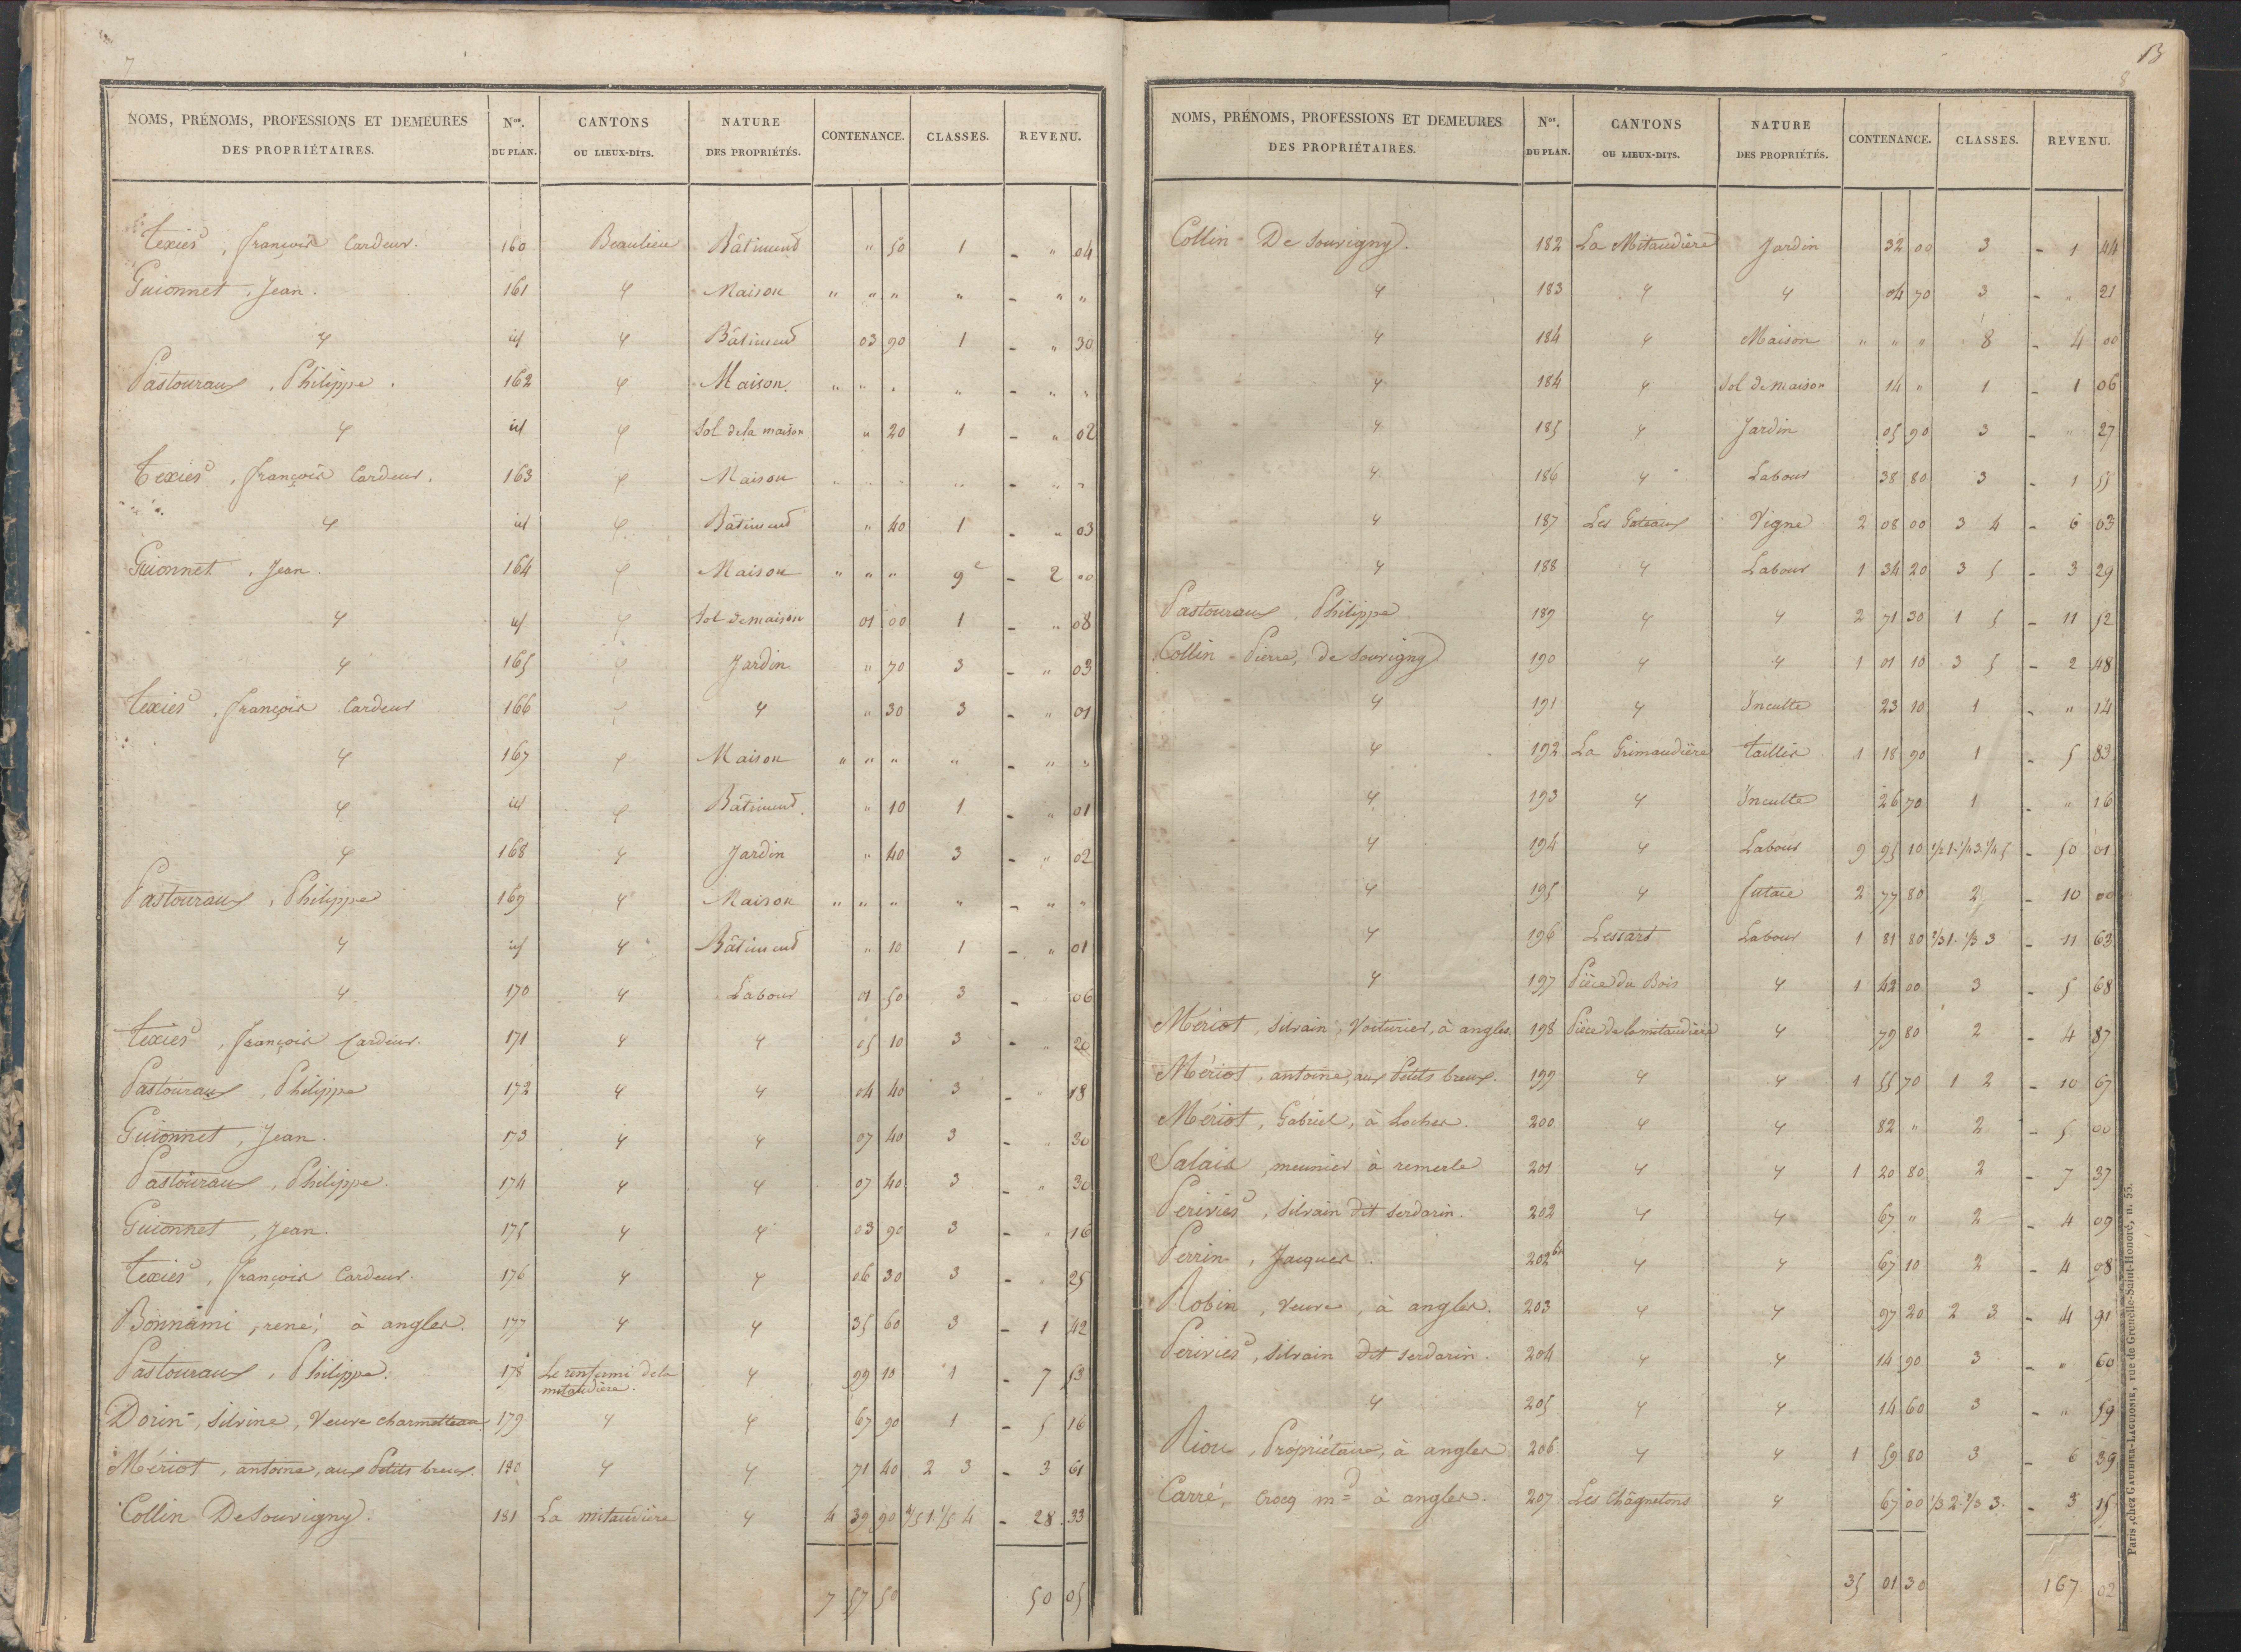 7
NOMS, PRÉNOMS, PROFESSIONS ET DEMEURES DES PROPRIÉTAIRES. Nos. DU PLAN. CANTONS OU LIEUX-DITS. NATURE DES PROPRIÉTÉS. CONTENANCE. CLASSES. REVENU.
Texier, françois Cardeur. 160 Beaulieu Bâtiment " 50 1 - " 04
Guionnet, Jean. 161 4 Maison " " " " - " "
4 id 4 Bâtiment 03 90 1 - " 30
Pastouraux, Philippe. 162 4 Maison. " " " " - " "
4 id 4 Sol de la maison " 20 1 - " 02
Texier, françois Cardeur. 163 4 Maison " " " " - " "
4 id 4 Bâtiment " 40 1 - " 03
Guionnet, Jean. 164 4 Maison " " " 9e - 2 00
4 id 4 Sol de maison 01 00 1 - " 08
4 165 4 Jardin " 70 3 - " 03
Texier, françois Cardeur 166 4 4 " 30 3 - " 01
4 167 4 Maison " " " " - " "
4 id 4 Bâtiment. " 10 1 - " 01
4 168 4 Jardin " 40 3 - " 02
Pastouraux, Philippe 169 4 Maison " " " " - " "
4 id 4 Bâtiment " 10 1 - " 01
4 170 4 Labour 01 50 3 - 06
Texier, françois Cardeur. 171 4 4 05 10 3 - " 20
Pastouraux, Philippe 172 4 4 04 40 3 - " 18
Guionnet, Jean. 173 4 4 07 40 3 - " 30
Pastouraux, Philippe. 174 4 4 07 40 3 - " 30
Guionnet, Jean. 175 4 4 03 90 3 - " 16
Texier, françois Cardeur. 176 4 4 06 30 3 - " 25
Bonnami, rené, à angles. 177 4 4 35 60 3 - 1 42
Pastouraux, Philippe. 178 Le renfermi de la mitaudière. 4 99 10 1 - 7 53
Dorin, Silvine, Veuve charmetteau 179 4 4 67 90 1 - 5 16
Mériot, antoine, aux Petits breux. 180 4 4 71 40 2 3 - 3 61
Collin De Souvigny. 181 La mitaudière 4 4 39 90 4/5 1. 1/5 4 - 28 33
7 57 50 50 05
13
8
NOMS, PRÉNOMS, PROFESSIONS ET DEMEURES DES PROPRIÉTAIRES. Nos. DU PLAN. CANTONS OU LIEUX-DITS. NATURE DES PROPRIÉTÉS. CONTENANCE. CLASSES. REVENU.
Collin - De Souvigny. 182 La Mitaudière Jardin 32 00 3 - 1 44
4 183 4 4 04 70 3 - " 21
4 184 4 Maison " " " 8 - 4 00
4 184 4 Sol de maison 14 " 1 - 1 06
4 185 4 Jardin 05 90 3 - " 27
4 186 4 Labour 38 80 3 - 1 55
4 187 Les Gateaux Vigne 2 08 00 3 4 - 6 03
4 188 4 Labour 1 34 20 3 5 - 3 29
Pastouraux, Philippe 189 4 4 2 71 30 1 5 - 11 52
Collin - Pierre, De Souvigny 190 4 4 1 01 10 3 5 - 2 48
4 191 4 Inculte 23 10 1 - " 14
4 192 La Grimaudière Taillis 1 18 90 1 - 5 83
4 193 4 Inculte 26 70 1 - " 16
4 194 4 Labour 9 95 10 1/2 1. 1/4 3. 1/4 5 - 50 01
4 195 4 futaie 2 77 80 2 - 10 00
4 196 Lessart Labour 1 81 80 2/3 1. 1/3 3 - 11 63
4 197 Pièce du Bois 4 1 42 00 3 - 5 68
Mériot, Silvain, Voiturier, à angles. 198 Pièce de la mitaudière 4 79 80 2 - 4 87
Mériot, antoine, aux Petits breux. 199 4 4 1 55 70 1 2 - 10 67
Mériot, Gabriel, à Loches. 200 4 4 82 " 2 - 5 00
Salais, meunier à remerle 201 4 4 1 20 80 2 - 7 37
Periviés, Silvain dit serdarin. 202 4 4 67 " 2 - 4 09
Perrin, Jacques. 202 bis 4 4 67 10 2 - 4 08
Robin, veuve, à angles. 203 4 4 97 20 2 3 - 4 91
Periviés, Silvain dit serdarin. 204 4 4 14 90 3 - " 60
4 205 4 4 14 60 3 - " 59
Riou, Propriétaire, à angles 206 4 4 1 59 80 3 - 6 39
Carré, Crocq md à angles. 207 Les Châgnetons 4 67 00 1/3 2. 2/3 3. - 3 15
35 01 30 167 02
Paris, chez GAVIDIER-LAGUIONIE, rue de Grenelle-Saint-Honoré, n. 55.